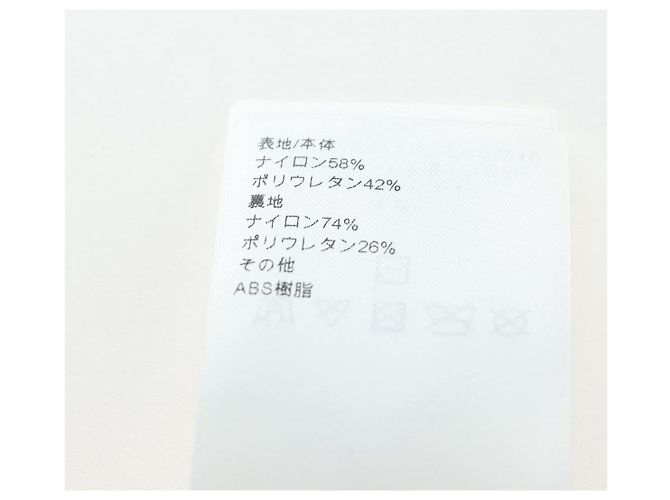 表地/本体
ナイロン58%
ポリウレタン42%
裏地
ナイロン74%
ポリウレタン26%
その他
ABS樹脂